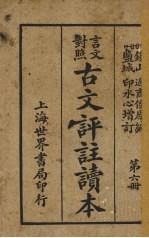 鹽城印水心增訂
言文對照
古文評註讀本
第六冊
上海世界書局印行